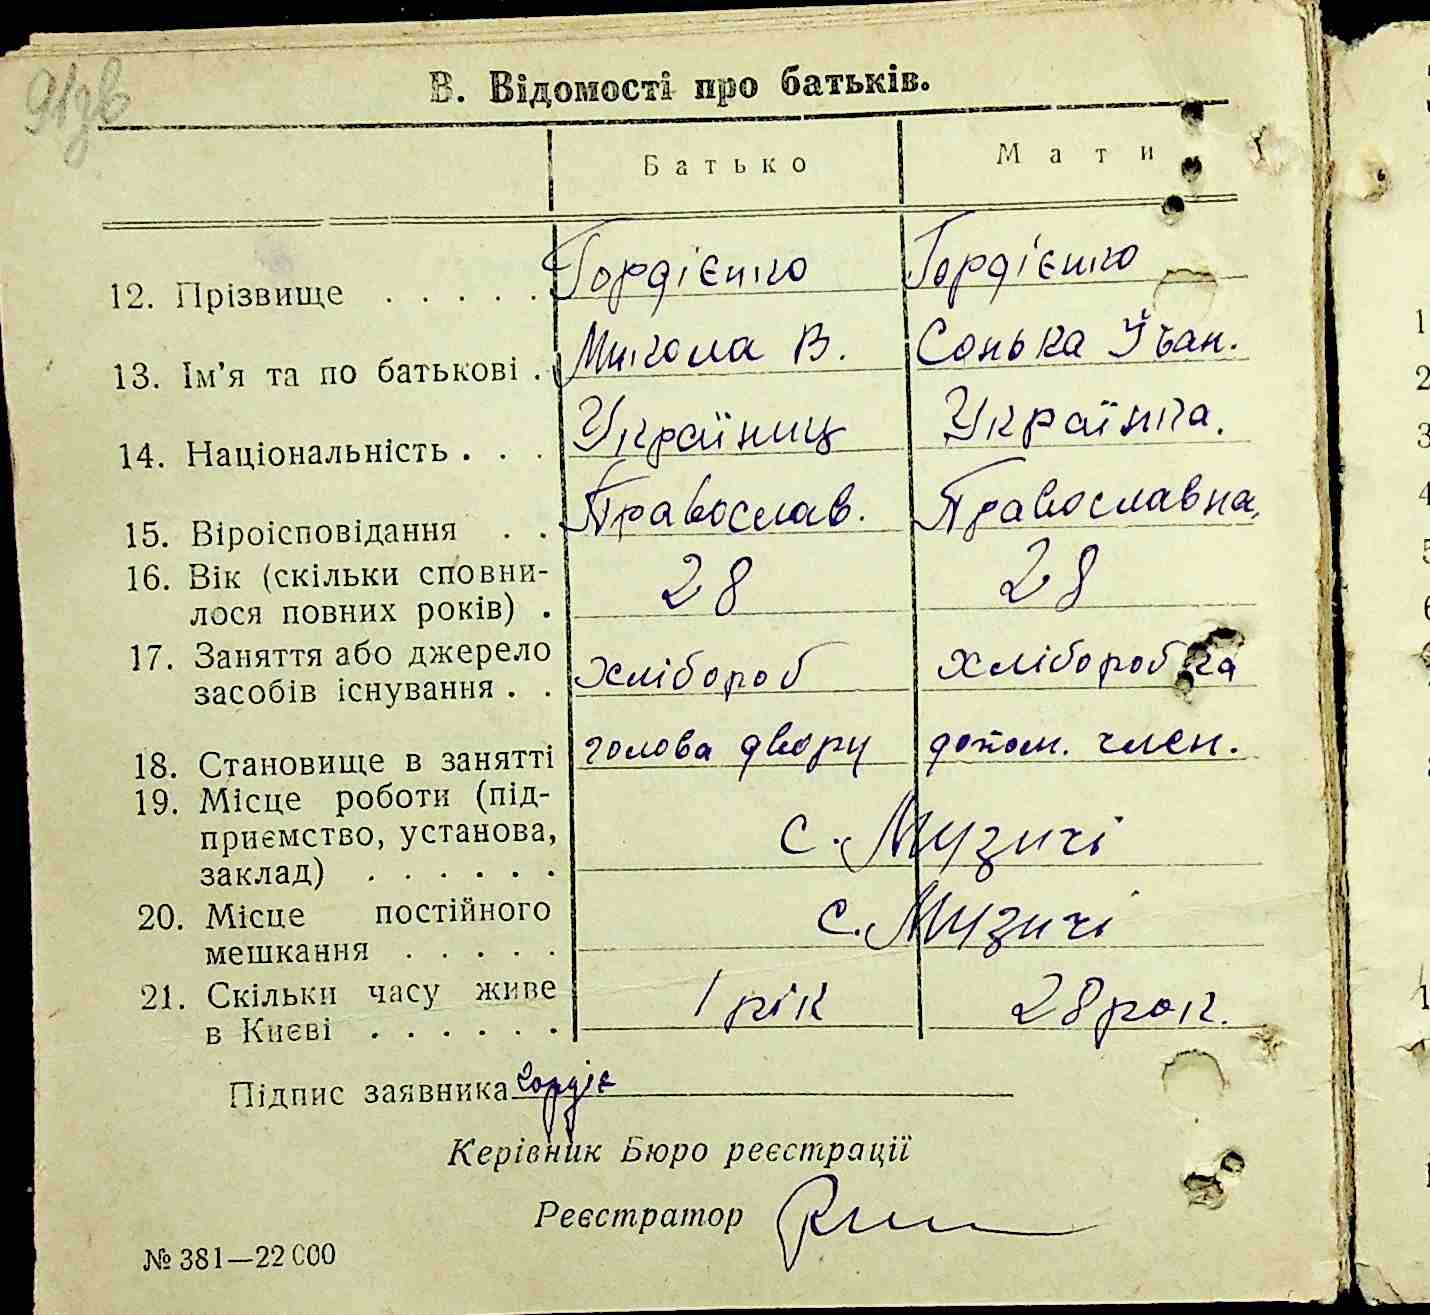 91зв
В. Відомості про батьків.
Батько Мати
12. Прізвище . . . . . Гордієнко Гордієнко
13. Ім'я та по батькові . Микола В. Сонька Іван.
14. Національність . . . Українец Українка.
15. Віроісповідання . . Православ. Православна.
16. Вік (скільки сповни-
лося повних років) . 28 28
17. Заняття або джерело
засобів існування . . хлібороб хліборобка
18. Становище в занятті голова двору допом. член.
19. Місце роботи (під-
приємство, установа,
заклад) . . . . . . с. Музичі
20. Місце постійного
мешкання . . . . . с. Музичі
21. Скільки часу живе
в Києві . . . . . . 1 рік 28 рок.
Підпис заявника Гордіє
Керівник Бюро реєстрації
Реєстратор
№ 381—22 000